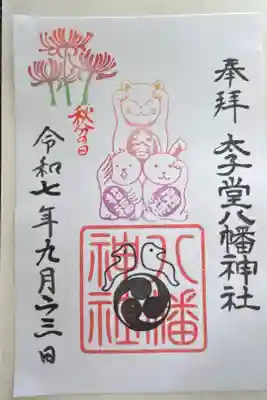 奉拝 太子堂八幡神社
秋分の日
令和七年九月二三日
八幡
神社